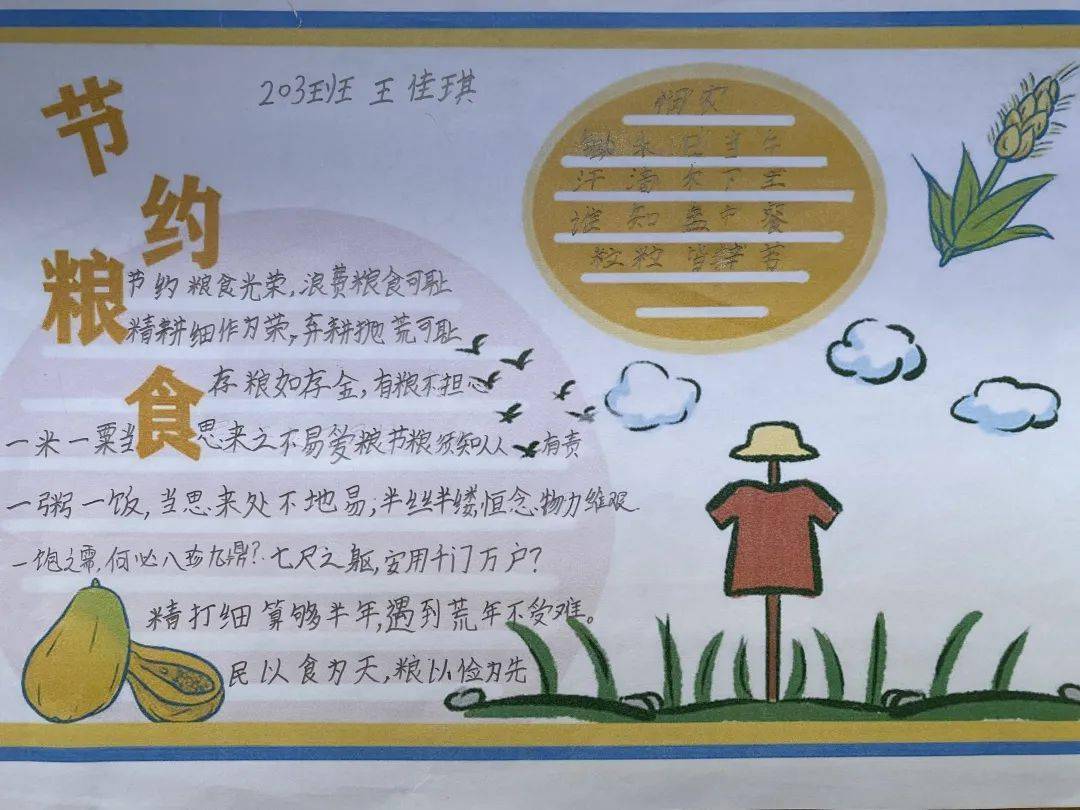 节约粮食
203班 王佳琪
悯农
锄禾日当午
汗滴禾下土
谁知盘中餐
粒粒皆辛苦
节约粮食光荣,浪费粮食可耻
精耕细作为荣,弃耕抛荒可耻
存粮如存金,有粮不担心
一米一粟当思来之不易爱粮节粮须知人人有责
一粥一饭,当思来处不地易;半丝半缕恒念物力维艰
一饱之需,何必八珍九鼎?七尺之躯,安用千门万户?
精打细算够半年,遇到荒年不受难。
民以食为天,粮以俭为先